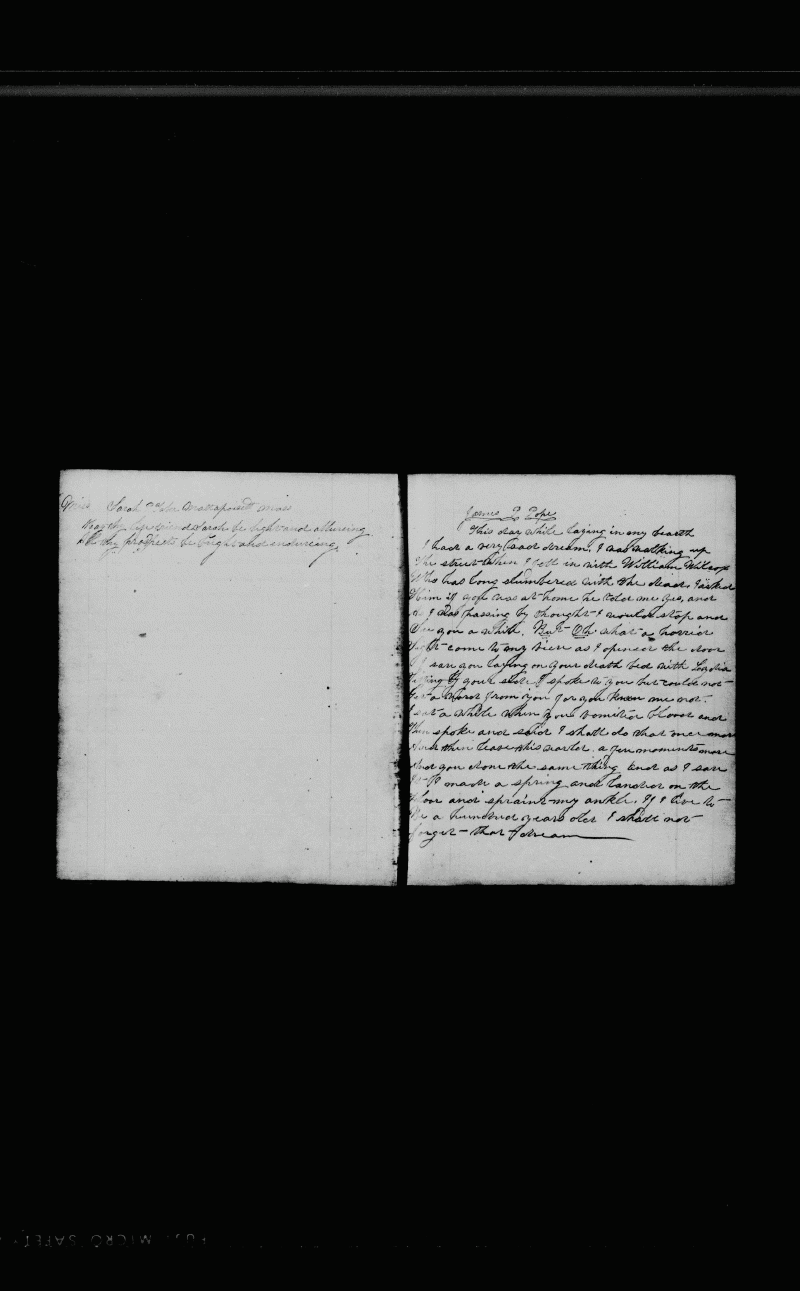 Miss Sarah Mattapoisett Mass
May thy Sarah be light and alluring
All thy prospects be bright and enduring.
James L Pope
This day while laying in my bearth
I had a very bad dream. I was walking up
The street when I fell in with William Wilcox
Who has long slumbered with the dead. I asked
Him if you was at home he told me yes, and
As I was passing by thought I would stop and
See you a while. But Oh what a horrid
Sight come to my view as I opened the door
I saw you laying on your death bed with Lordia
by your side I spoke to you but could not
Get a word from you for you knew me not.
I sat a while when you vomited blood and
Then spoke and said I shall do that once more
And then leave this world. a few moments more
And you done the same thing and as I saw
It I made a spring and landed on the
Floor and spraint my ankle. If I live to
Be a hundred years old I shall not
forget that dream
FUJI MICRO SAFETY